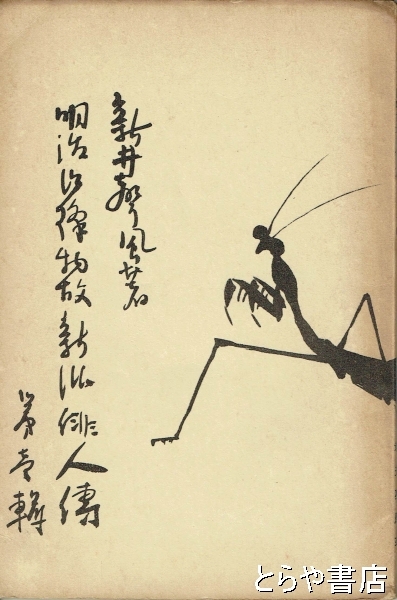 新井聲風著
明治以降物故新派俳人傳
第壱輯
とらや書店